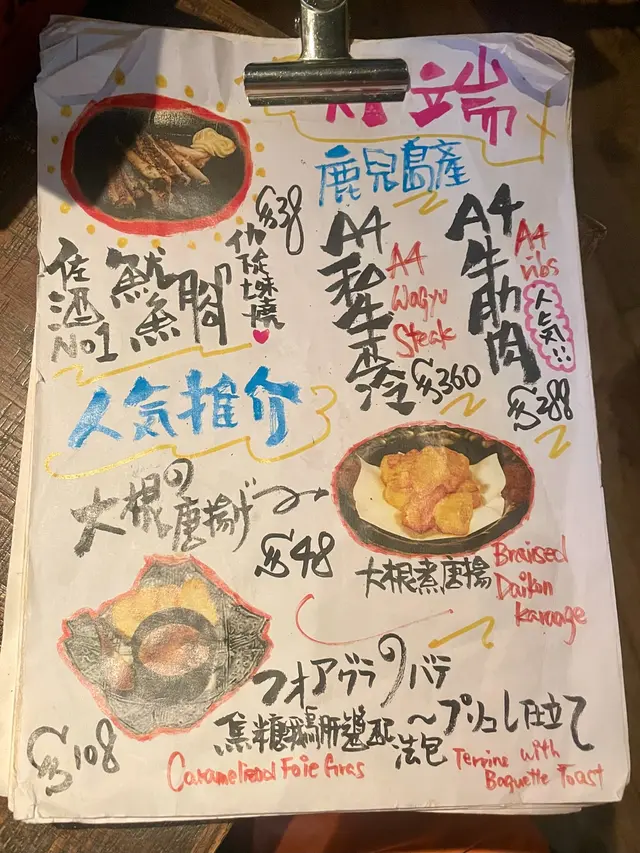 端
鹿兒島產
$38
佐酒
No1
魷魚腳
七味燒
A4
和牛西冷
A4
Wagyu
Steak
$360
A4
牛肋肉
A4
ribs
人気!!
$288
人気推介
大根の唐揚げ
$48
大根煮唐揚
Braised
Daikon
karaage
フォアグラのパテ
〜ブリュレ仕立て
焦糖鵝肝醬配
法包
Caramelized Foie Gras
Terrine with
Baguette Toast
$108